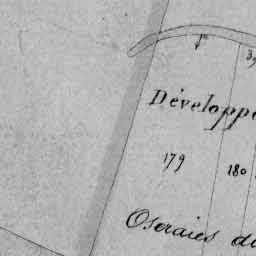 Développe
179
180
Oseraies du